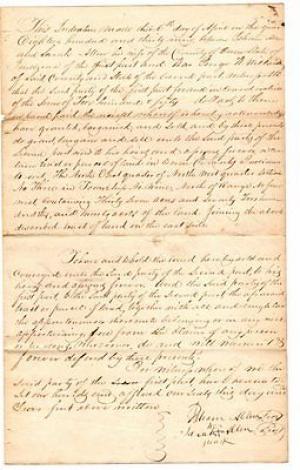 This Indenture made this 6th day of April in the year
Eight hundred and thirty
and Sarah Allen his wife of the County of Owen State of
Indiana of the first part and
of Said County and State of the Second part witnesseth
that the Said party of the first part for and in Consideration
of the Sum of Two hundred & fifty dollars to them
in hand paid the receipt whereof is hereby acknowledged
have granted, bargained, and Sold and by these presents
do grant bargain and sell unto the Said party of the
Second part and his heirs and assigns forever a certain
tract or parcel of land in Owen County Indiana
to wit, The North East quarter of North West quarter Section
No Three in Township No Nine North of Range No four
west Containing Thirty Seven acres and
and ninety acres of the land Joining the above
described tract of land on the east side
To have and to hold the land hereby sold and
conveyed unto the Said party of the Second part, to his
heirs and assigns forever And the Said party of the
first part to the Said party of the Second part the aforesaid
tract or parcel of land, together with all and Singular
the appurtenances thereunto belonging or in any wise
appertaining free from the claims of any person
or persons Whomsoever, do and will warrant &
forever defend by these presents
In Witness whereof we the
Said party of the first part, have hereunto
Set our hands and affixed our Seals this day and
Year first above written
Allen
Sarah Allen
mark